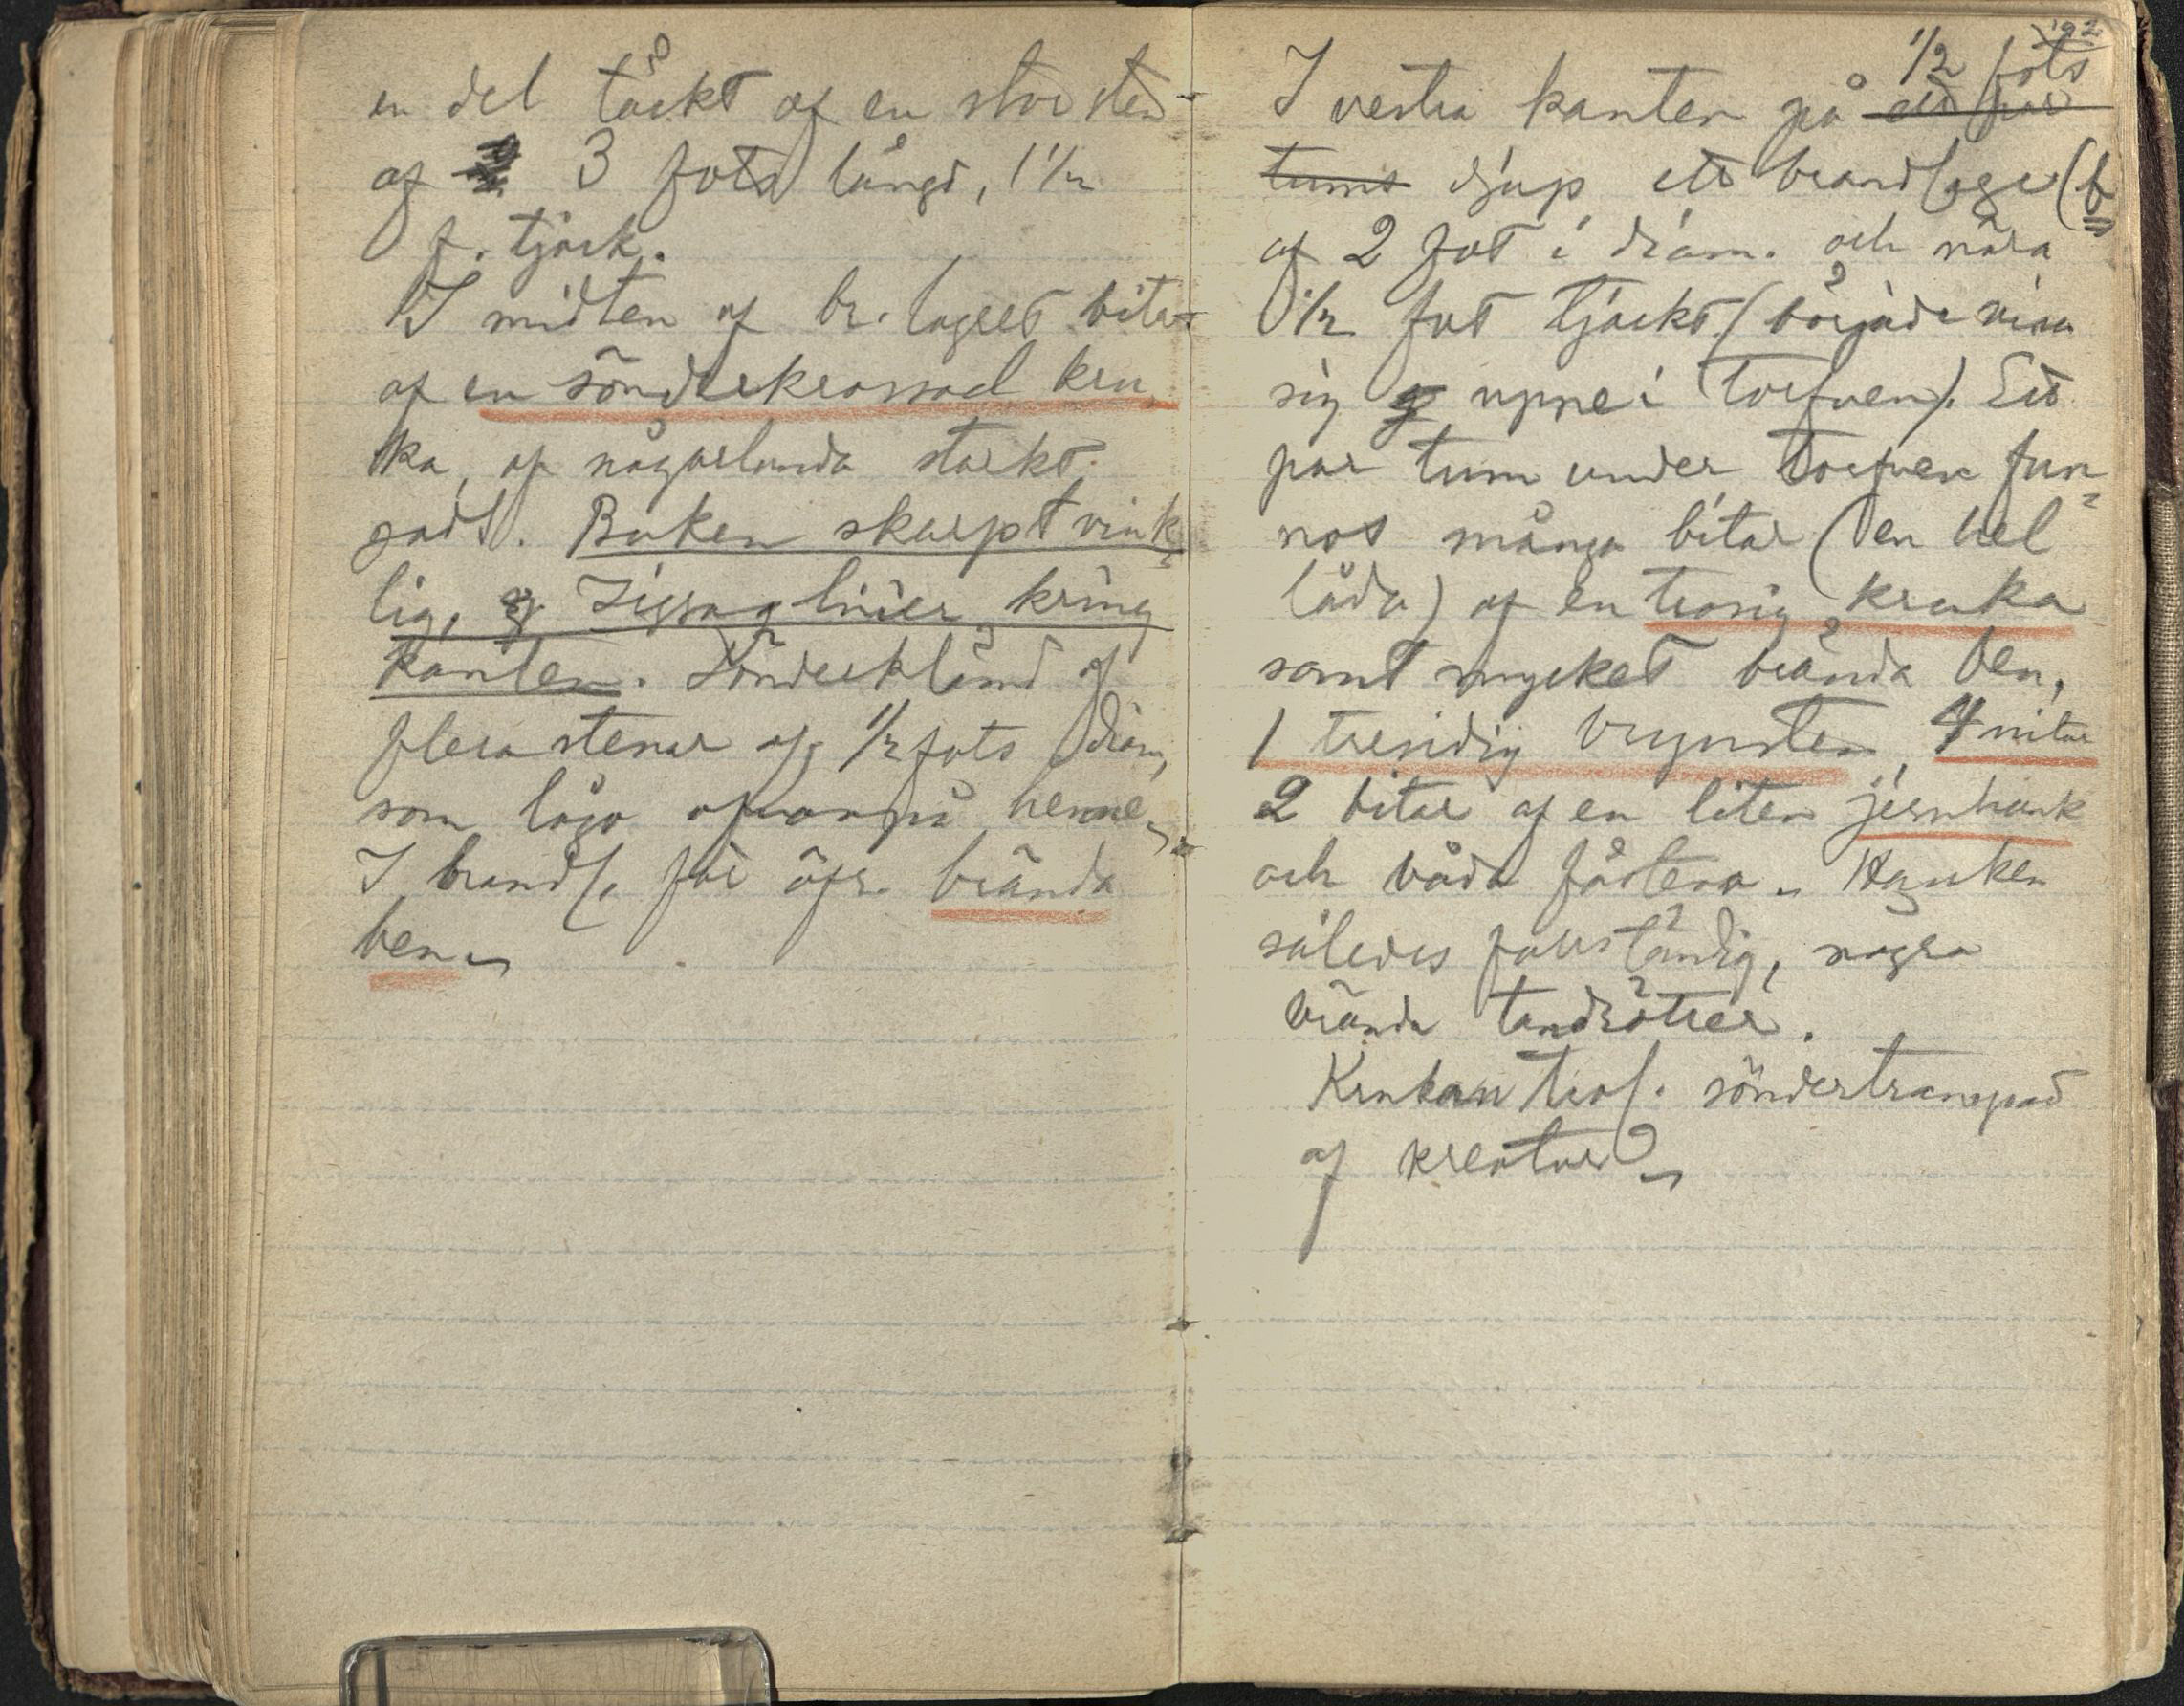 en del täckt af en stor sten
af 3 fots längd, 1 1/2
f. tjock.
I midten af br. lagret bitar
af en sönderkrossad kru-
ka, af någorlunda starkt
godt. Buken skarpt vink-
lig, Zigzaglinier kring
kanten. Sönderklämd af
flera stenar af 1/2 fots diam,
som lågo ofvanpå henne.
I brandl. för öfr. brända
ben.
192
1/2 fots
I vestra kanten på ett par
tums djup ett brandlager (b
af 2 fot i diam. och nära
1/2 fot tjockt (började visa
sig uppe i torfven). Ett
par tum under torfven fun-
nos många bitar (en hel
låda) af en trasig kruka
samt mycket brända ben,
1 tresidig brynsten, 4 nitar
2 bitar af en liten jernhank
och båda fästena. Hanken
således fullständig, några
brända tandrötter.
Krukan trol. söndertrampad
af kreatur?